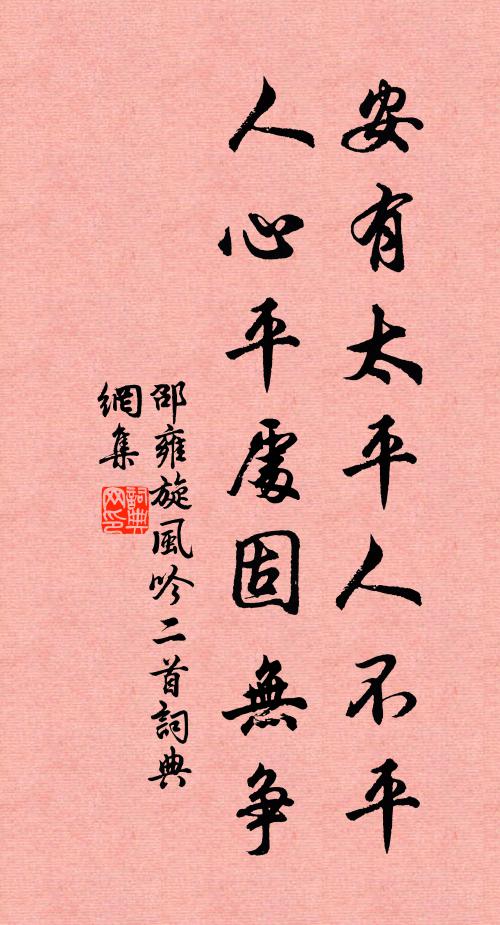 安有太平人不平
人心平處固無爭
邵雍旋風吟二首詞典
網集
詞典
网印